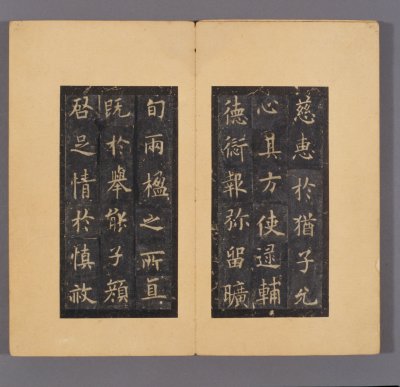 慈惠於猶子允
心其方使遠輔
德衍報弥留曠
旬兩楹之所真
既於舉能子顔
啓足情於慎敘